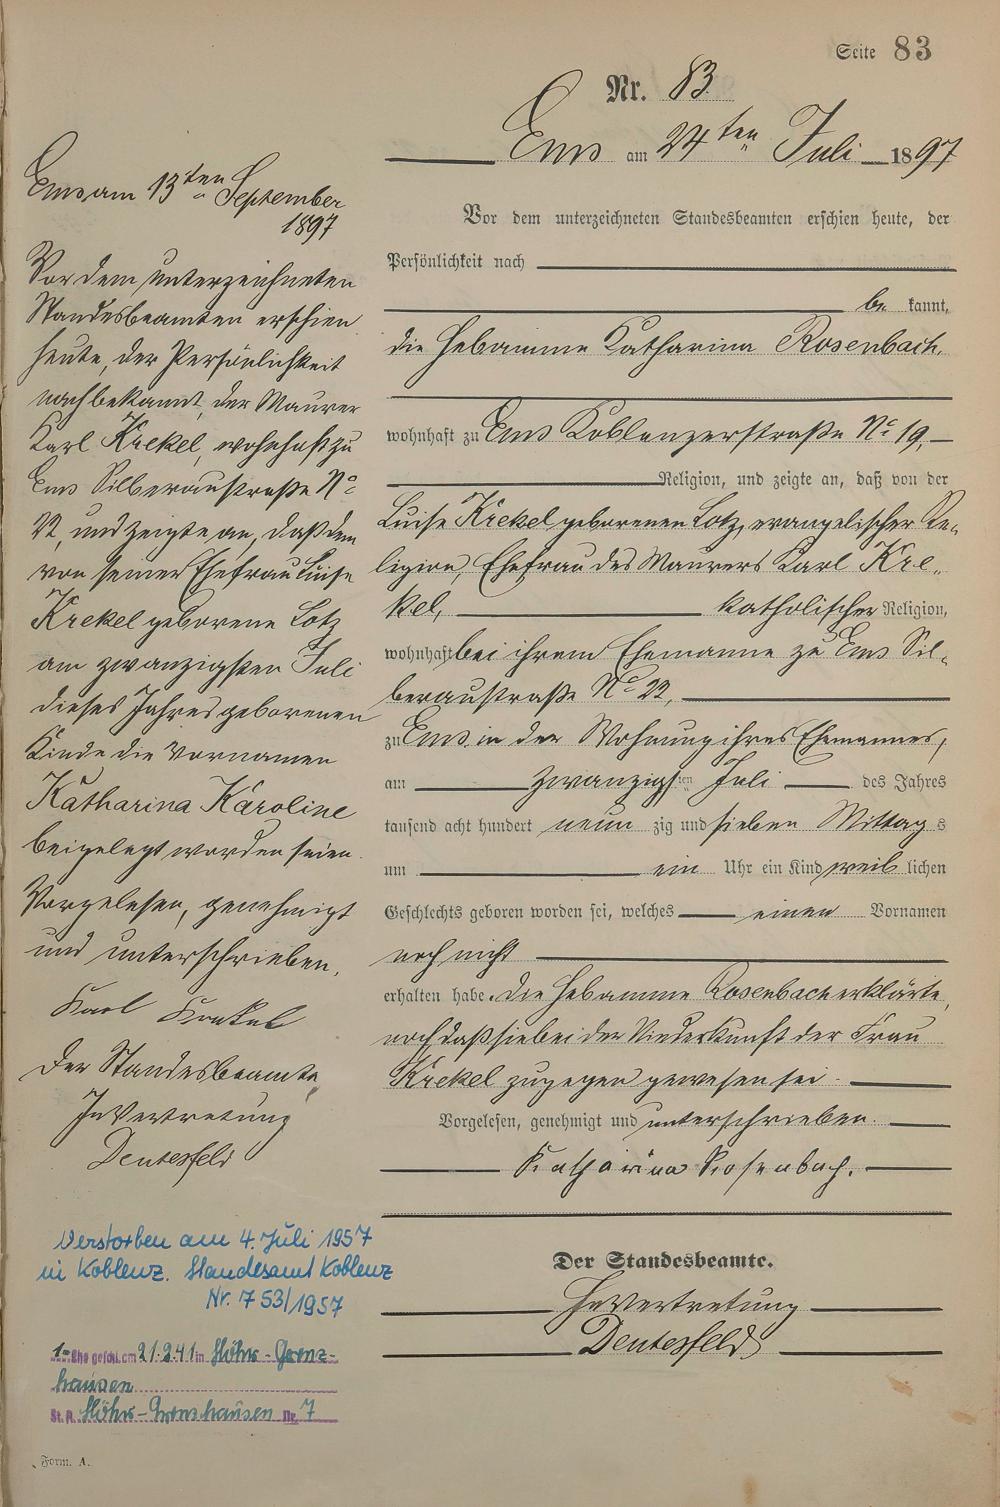 Seite 83
Nr. 83.
Ems am 24ten Juli 1897
Vor dem unterzeichneten Standesbeamten erschien heute, der
Persönlichkeit nach
be kannt,
die Hebamme Katharina Rosenbach,
wohnhaft zu Ems Koblenzerstraße No 19,
Religion, und zeigte an, daß von der
Luise Krekel geborenen Lotz, evangelischer Re-
ligion, Ehefrau des Maurers Karl Kre-
kel, katholischer Religion,
wohnhaft bei ihrem Ehemanne zu Ems Sil-
beraustraße No 22,
zu Ems in der Wohnung ihres Ehemannes,
am zwanzigsten Juli des Jahres
tausend acht hundert neun zig und sieben Mittag s
um ein Uhr ein Kind weib lichen
Geschlechts geboren worden sei, welches einen Vornamen
noch nicht
erhalten habe. Die Hebamme Rosenbach erklärte,
noch daß sie bei der Niederkunft der Frau
Krekel zugegen gewesen sei.
Vorgelesen, genehmigt und unterschrieben.
Katharina Rosenbach.
Der Standesbeamte.
In Vertretung
Deutesfeld
Ems am 13ten September
1897
Vor dem unterzeichneten
Standesbeamten erschien
heute, der Persönlichkeit
nach bekannt, der Maurer
Karl Krekel, wohnhaft zu
Ems Silberaustraße No
22, und zeigte an, daß dem
von seiner Ehefrau Luise
Krekel geborene Lotz
am zwanzigsten Juli
dieses Jahres geborenen
Kinde die Vornamen
Katharina Karoline
beigelegt worden seien.
Vorgelesen, genehmigt
und unterschrieben.
Karl Krekel
Der Standesbeamte
In Vertretung
Deutesfeld
Verstorben am 4. Juli 1957
in Koblenz. Standesamt Koblenz
Nr. 753/1957
1. Ehe geschl. am 21.2.41 in Höhr-Grenz-
hausen
St. A. Höhr-Grenzhausen Nr. 7
Form. A.